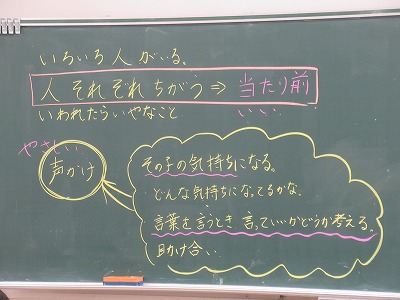 いろいろ人がいる。
人それぞれちがう⇒当たり前
いわれたらいやなこと
いいい
やさしい
声かけ
その子の気持ちになる。
どんな気持ちになってるかな。
言葉を言うとき言っていいかどうか考える。
助け合い